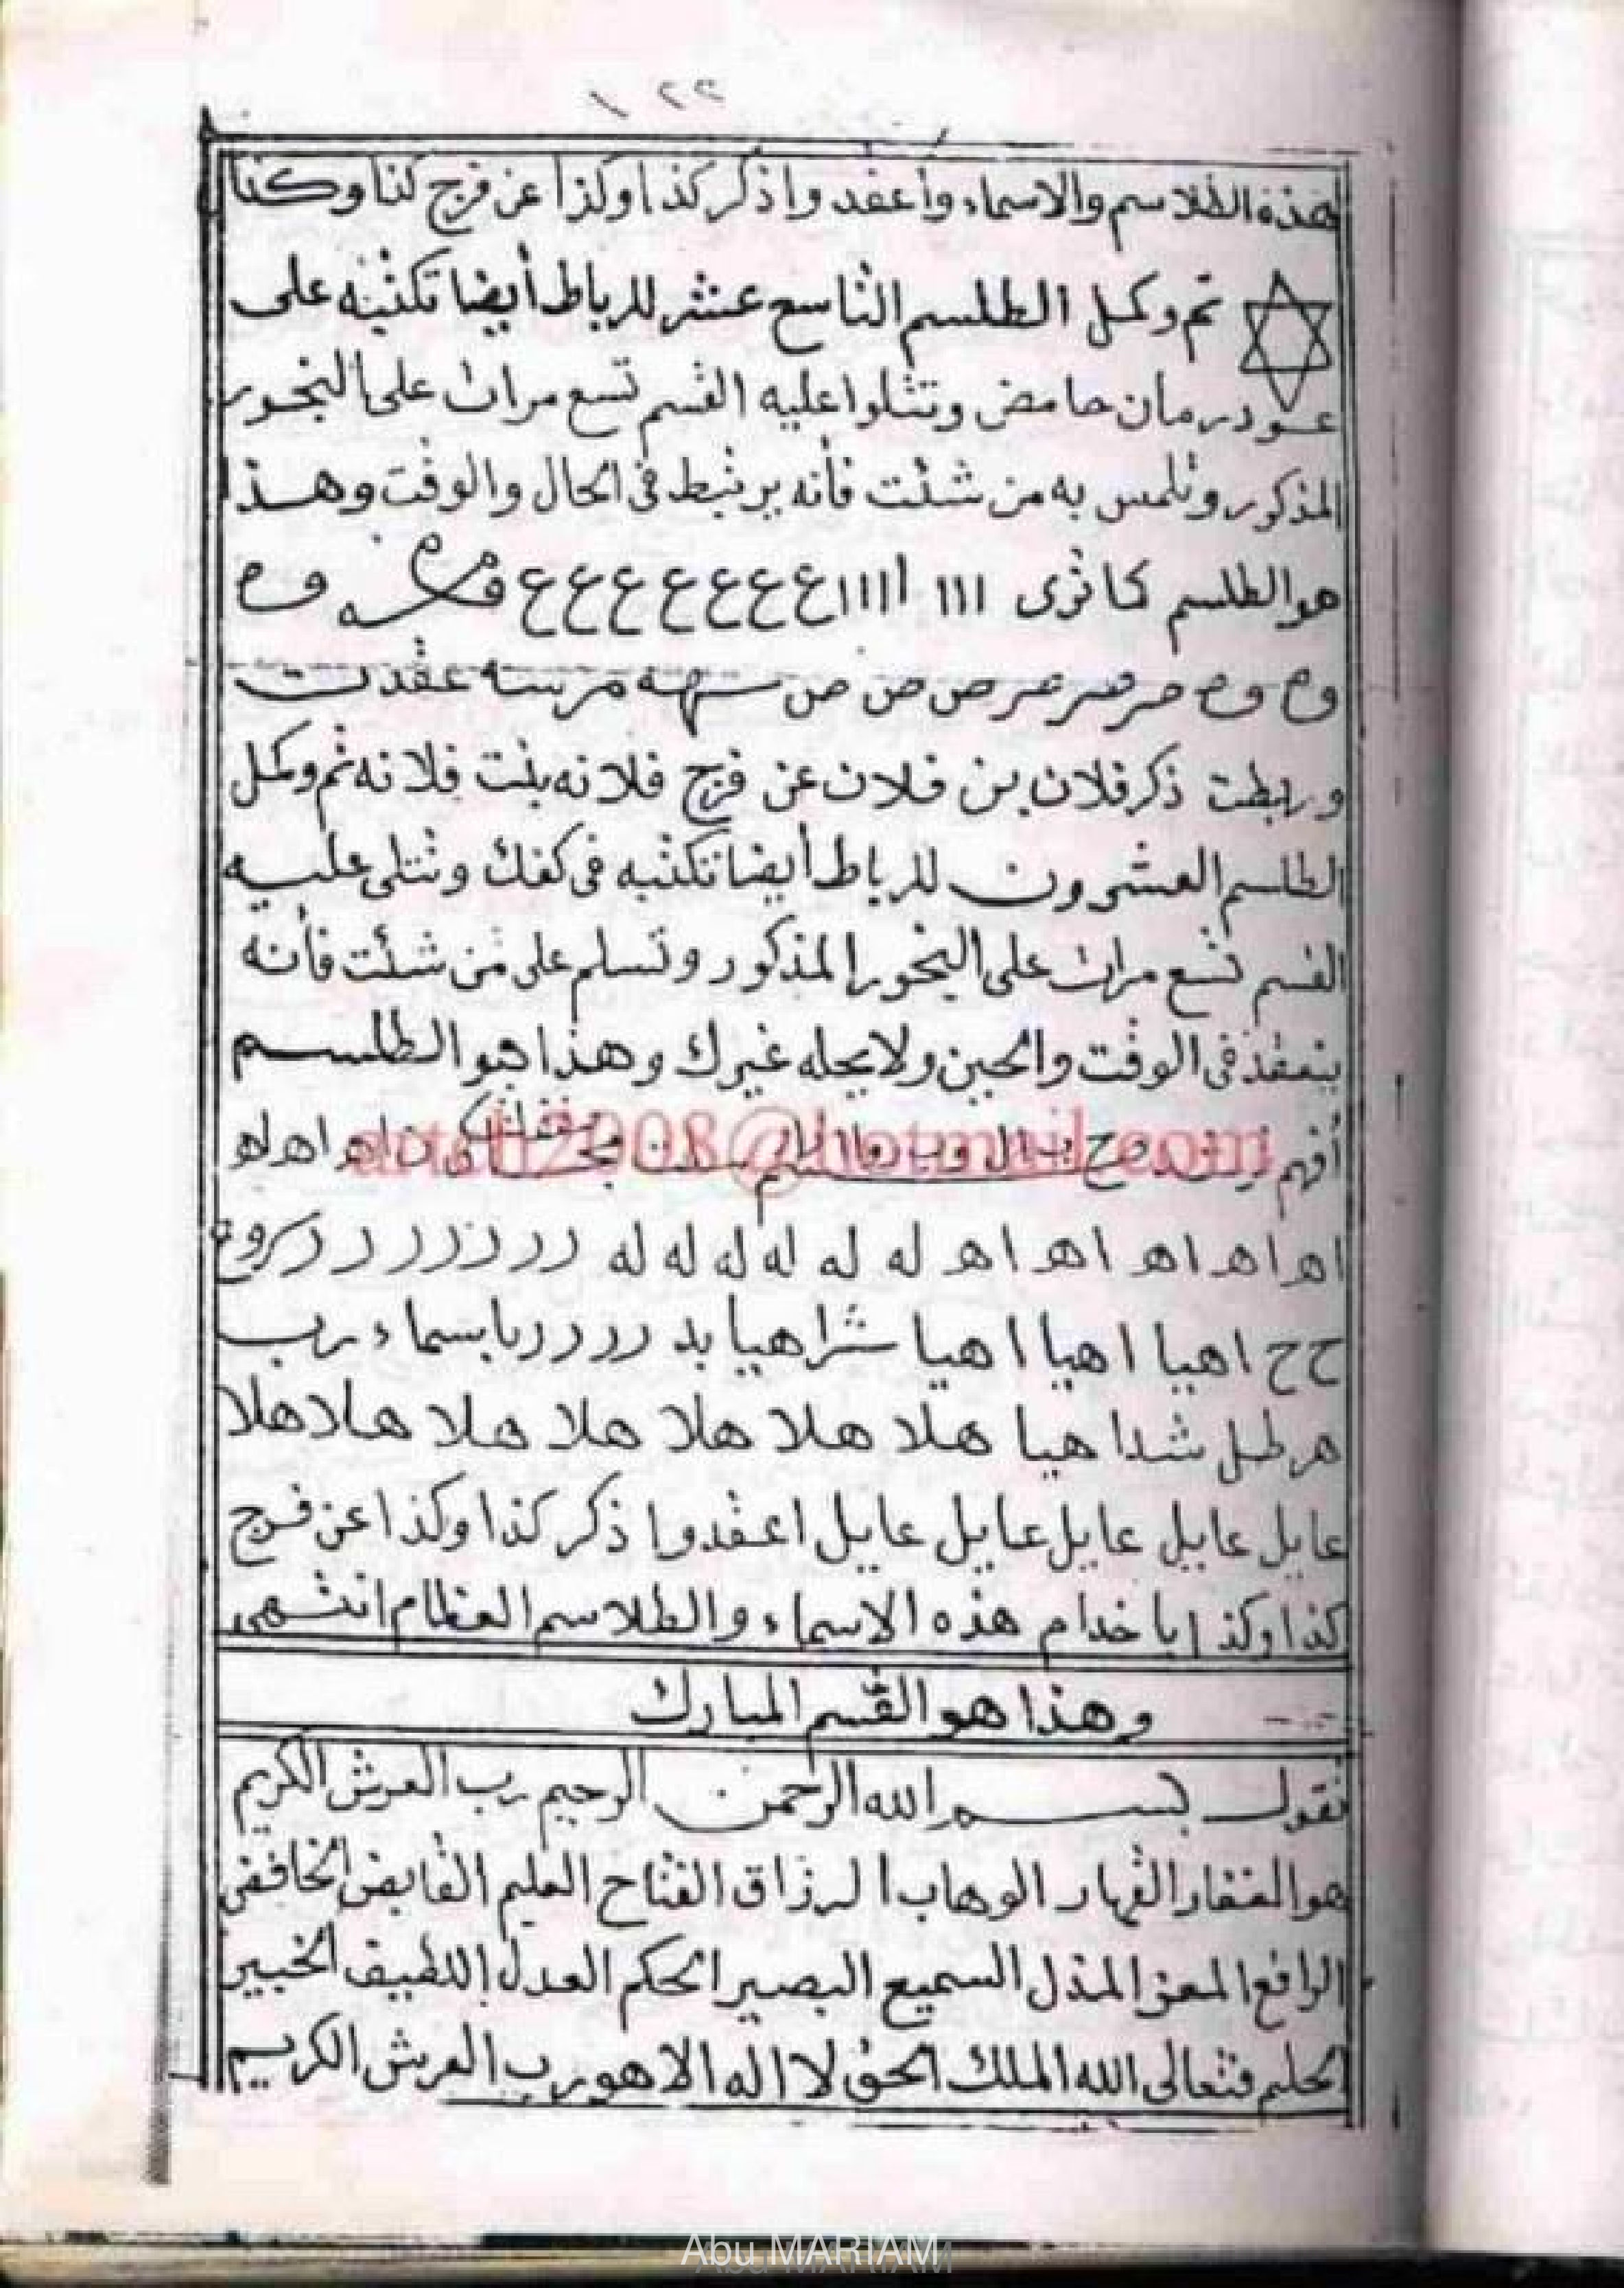 ١٢٣
هذه الطلاسم والاسماء واعقد واذكر كذا وكذا عن فرج كذا وكذا
تم وكمل الطلسم التاسع عشر للرباط أيضا تكتبه على
عود رمان حامض وتتلوا عليه القسم تسع مرات على البخور
المذكور وتلمس به من شئت فأنه يرتبط في الحال والوقت وهذا
هو الطلسم كما ترى ١١١ ١١١١ ع ع ع ع ع ع ع
ص ص ص سهه مرسه عقدت
وربطت ذكر فلان بن فلان عن فرج فلانه بنت فلانه تم وكمل
الطلسم العشرون للرباط أيضا تكتبه في كفك وتتلى عليه
القسم تسع مرات على البخور المذكور وتسلم على من شئت فأنه
ينعقد في الوقت والحين ولا يحله غيرك وهذا هو الطلسم
أفهم اهد اهد
اهد اهد اهد اهد اهد اهد له له له له له له ر ر ر ر ر ر ر ر
ح ح اهيا اهيا اهيا شراهيا بد ر ر ر ر يا بسماء رب
هرطل شدا هيا هلا هلا هلا هلا هلا هلا هلا
عايل عايل عايل عايل عايل اعقدوا ذكر كذا وكذا عن فرج
كذا وكذا يا خدام هذه الاسماء والطلاسم العظام انتهى
وهذا هو القسم المبارك
تقول بسم الله الرحمن الرحيم رب العرش الكريم
هو الغفار القهار الوهاب الرزاق الفتاح العليم القابض الخافض
الرافع المعز المذل السميع البصير الحكم العدل اللطيف الخبير
الحليم فتعالى الله الملك الحق لا اله الا هو رب العرش الكريم
Abu MARIAM